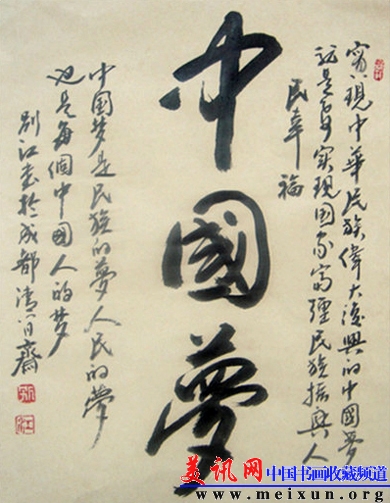 實現中華民族偉大復興的中國夢
就是要實現国家富彊民族振興人
民幸福
中國夢
中国梦是民族的夢人民的夢
也是每個中国人的梦
别江書於成都清白齋
美讯网 中国书画收藏频道
www.meixun.org